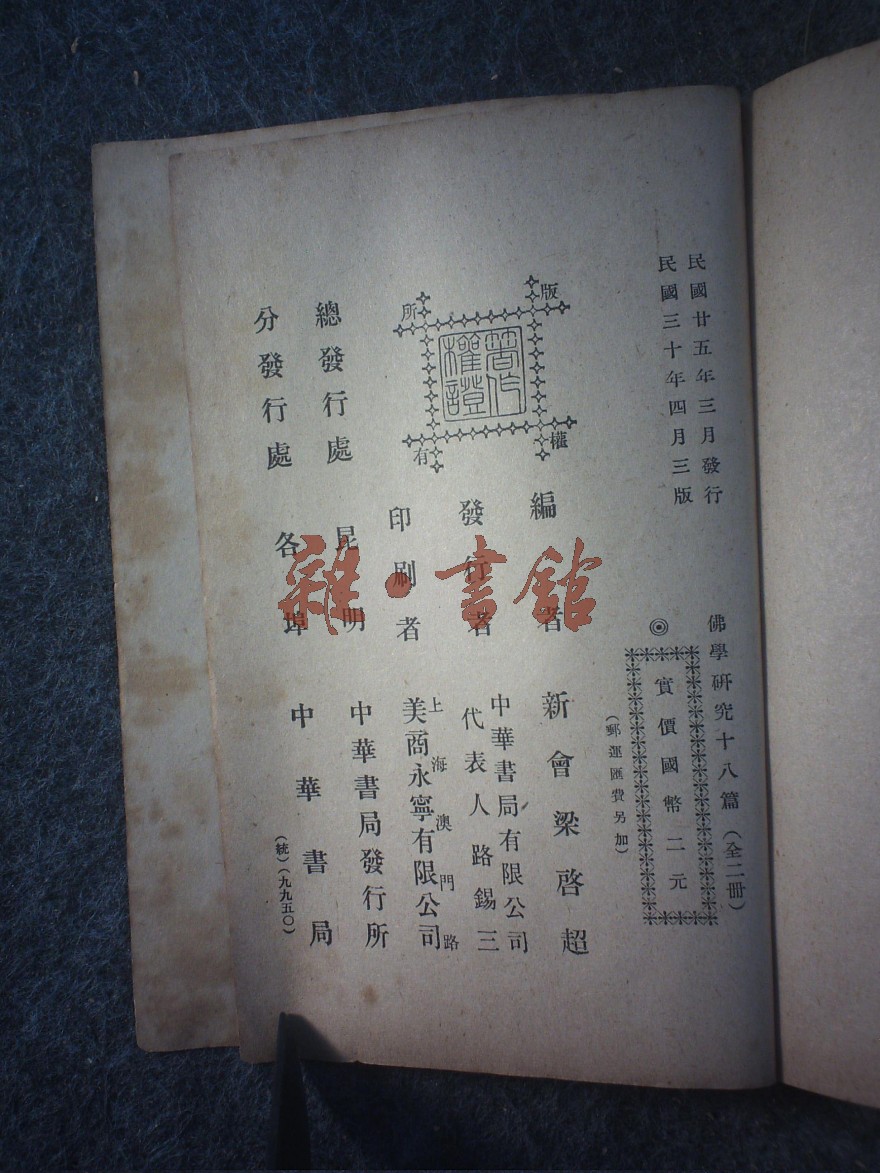 民國廿五年三月發行
民國三十年四月三版
佛學硏究十八篇（全二冊）
◎實價國幣二元
（郵運匯費另加）
版權所有
著作權證
編者 新會梁啓超
發行者 中華書局有限公司
代表人路錫三
印刷者 上海澳門路
美商永寧有限公司
總發行處 昆明 中華書局發行所
分發行處 各埠 中華書局
（統）（九九五〇）
雜·書館